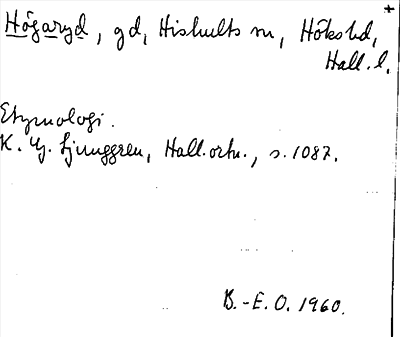 +
Högaryd, gd, Hishults sn, Höks hd,
Hall. l.
Etymologi.
K. G. Ljunggren, Hall. ortn., s. 1087.
B.-E. O. 1960.